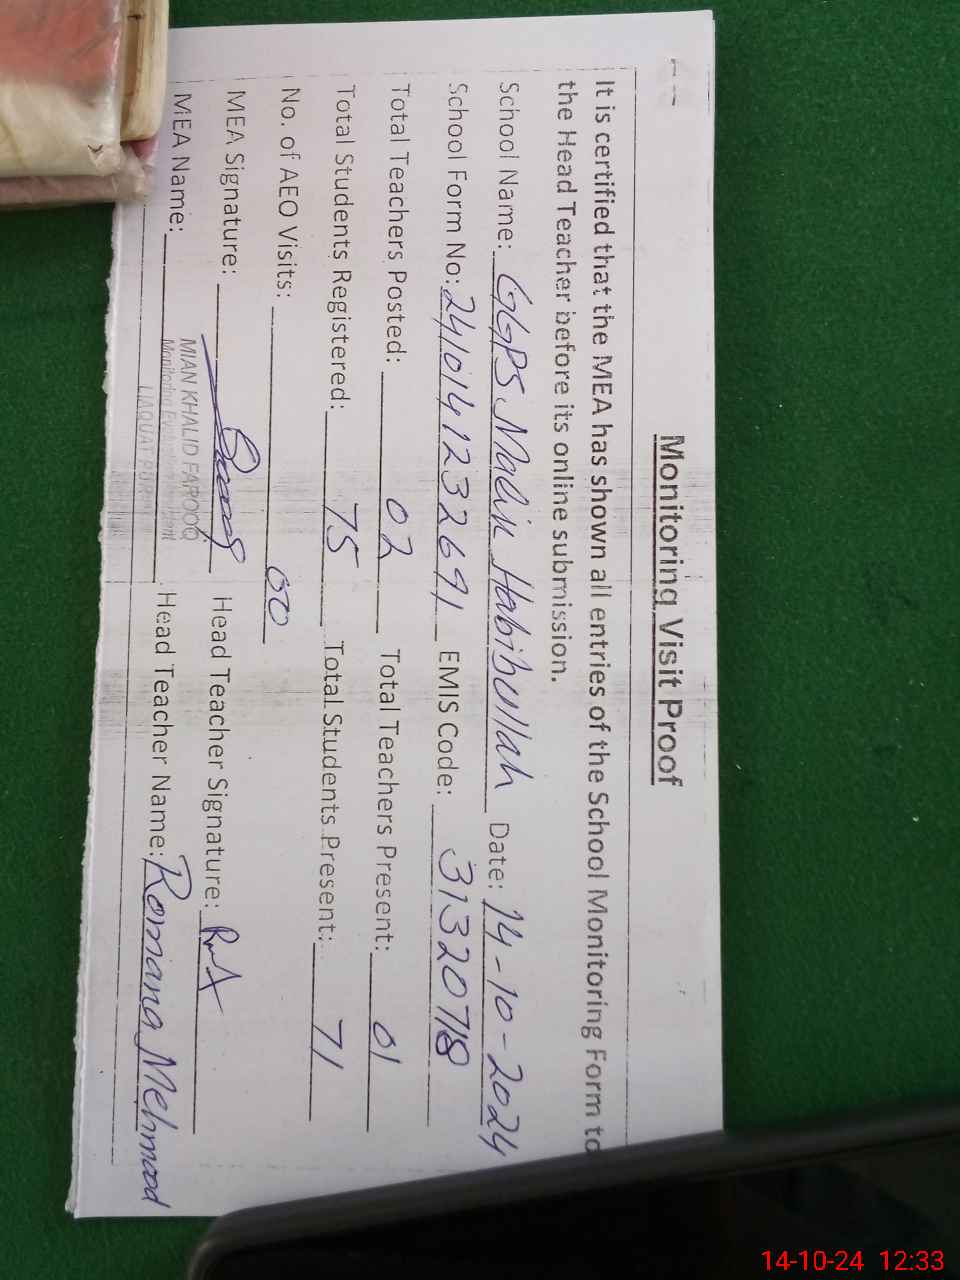 Monitoring Visit Proof
It is certified that the MEA has shown all entries of the School Monitoring Form to
the Head Teacher before its online submission.
School Name: GGPS Malik Habibullah Date: 14-10-2024
School Form No: 2410141232691 EMIS Code: 31320718
Total Teachers Posted: 02 Total Teachers Present: 01
Total Students Registered: 75 Total Students Present: 71
No. of AEO Visits: 00
MEA Signature: Head Teacher Signature:
MIAN KHALID FAROOQ
MEA Name: Head Teacher Name: Romana Mehmood
Monitoring
LIAQUAT PUR
14-10-24 12:33